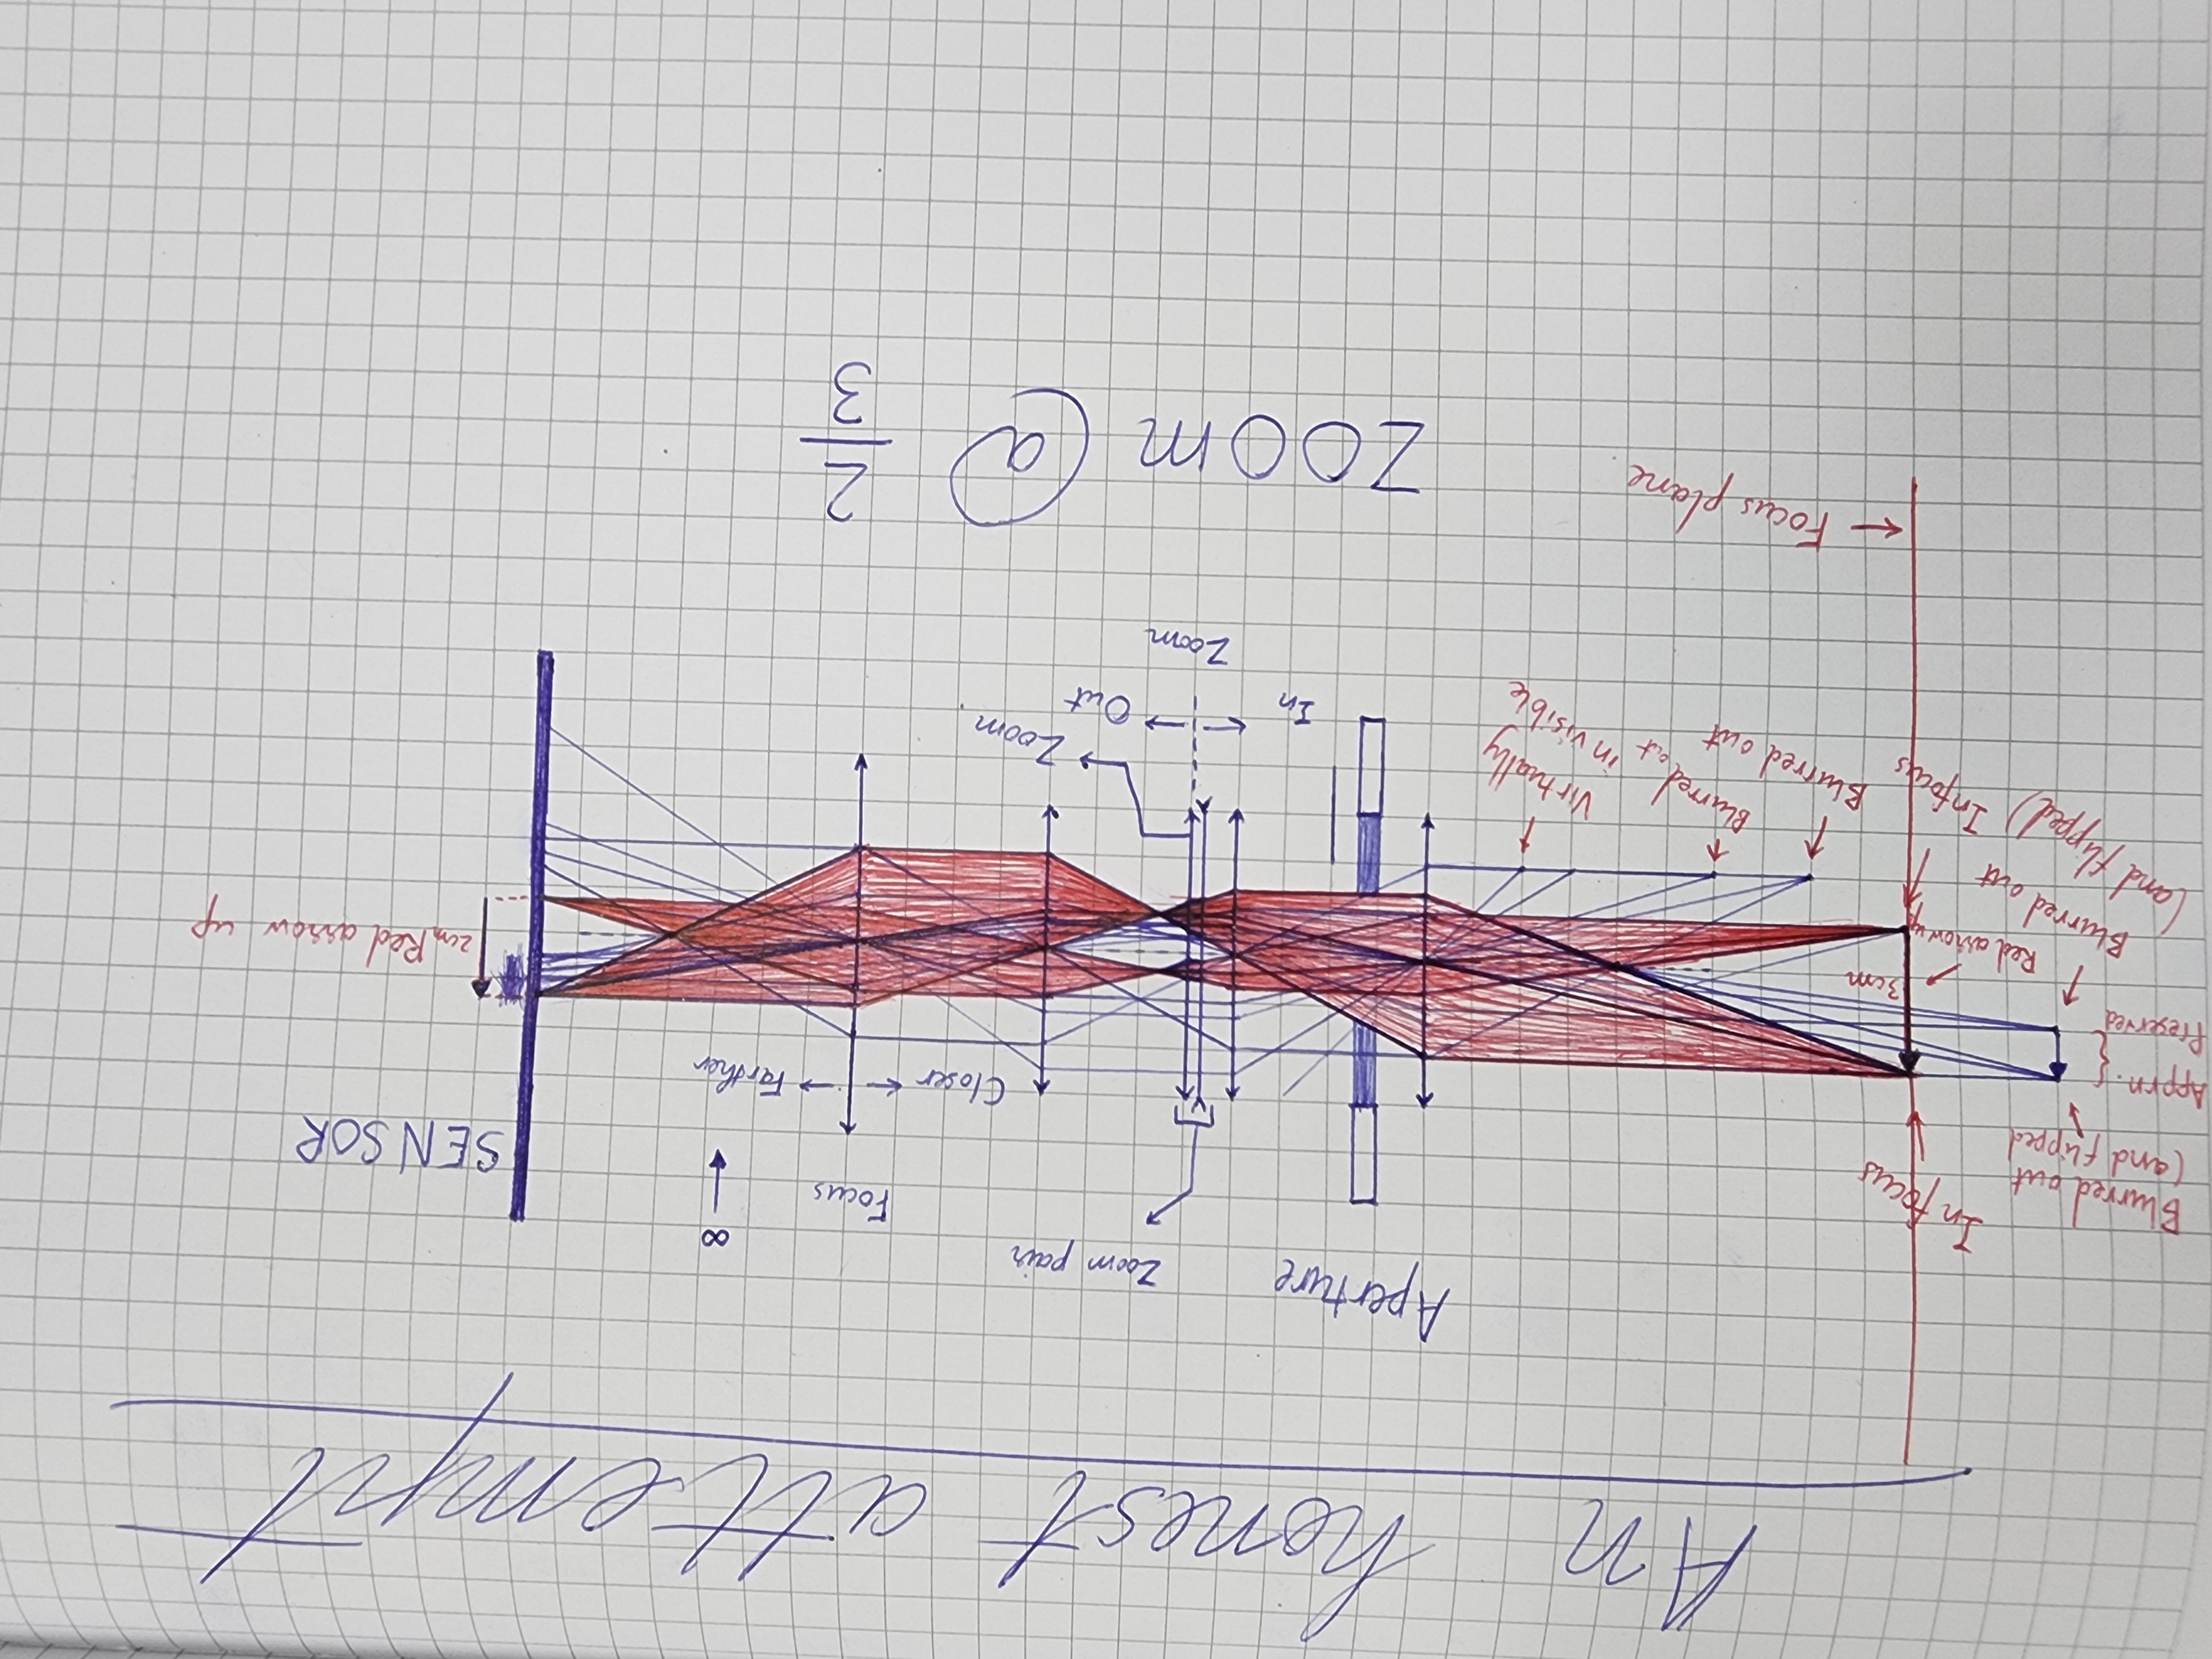 An honest attempt
Aperture
Zoom pair
Focus
∞
SENSOR
Closer
Farther
Infocus
Blurred out
(and flipped
Apprn.
Preserved
3cm
Red arrow up
2cm Red arrow up
Blurred out
(and flipped)
Infocus
Blurred out
Blurred out
Virtually
invisible
Zoom
In
Out
Zoom
Focus plane
ZOOM @ 2/3